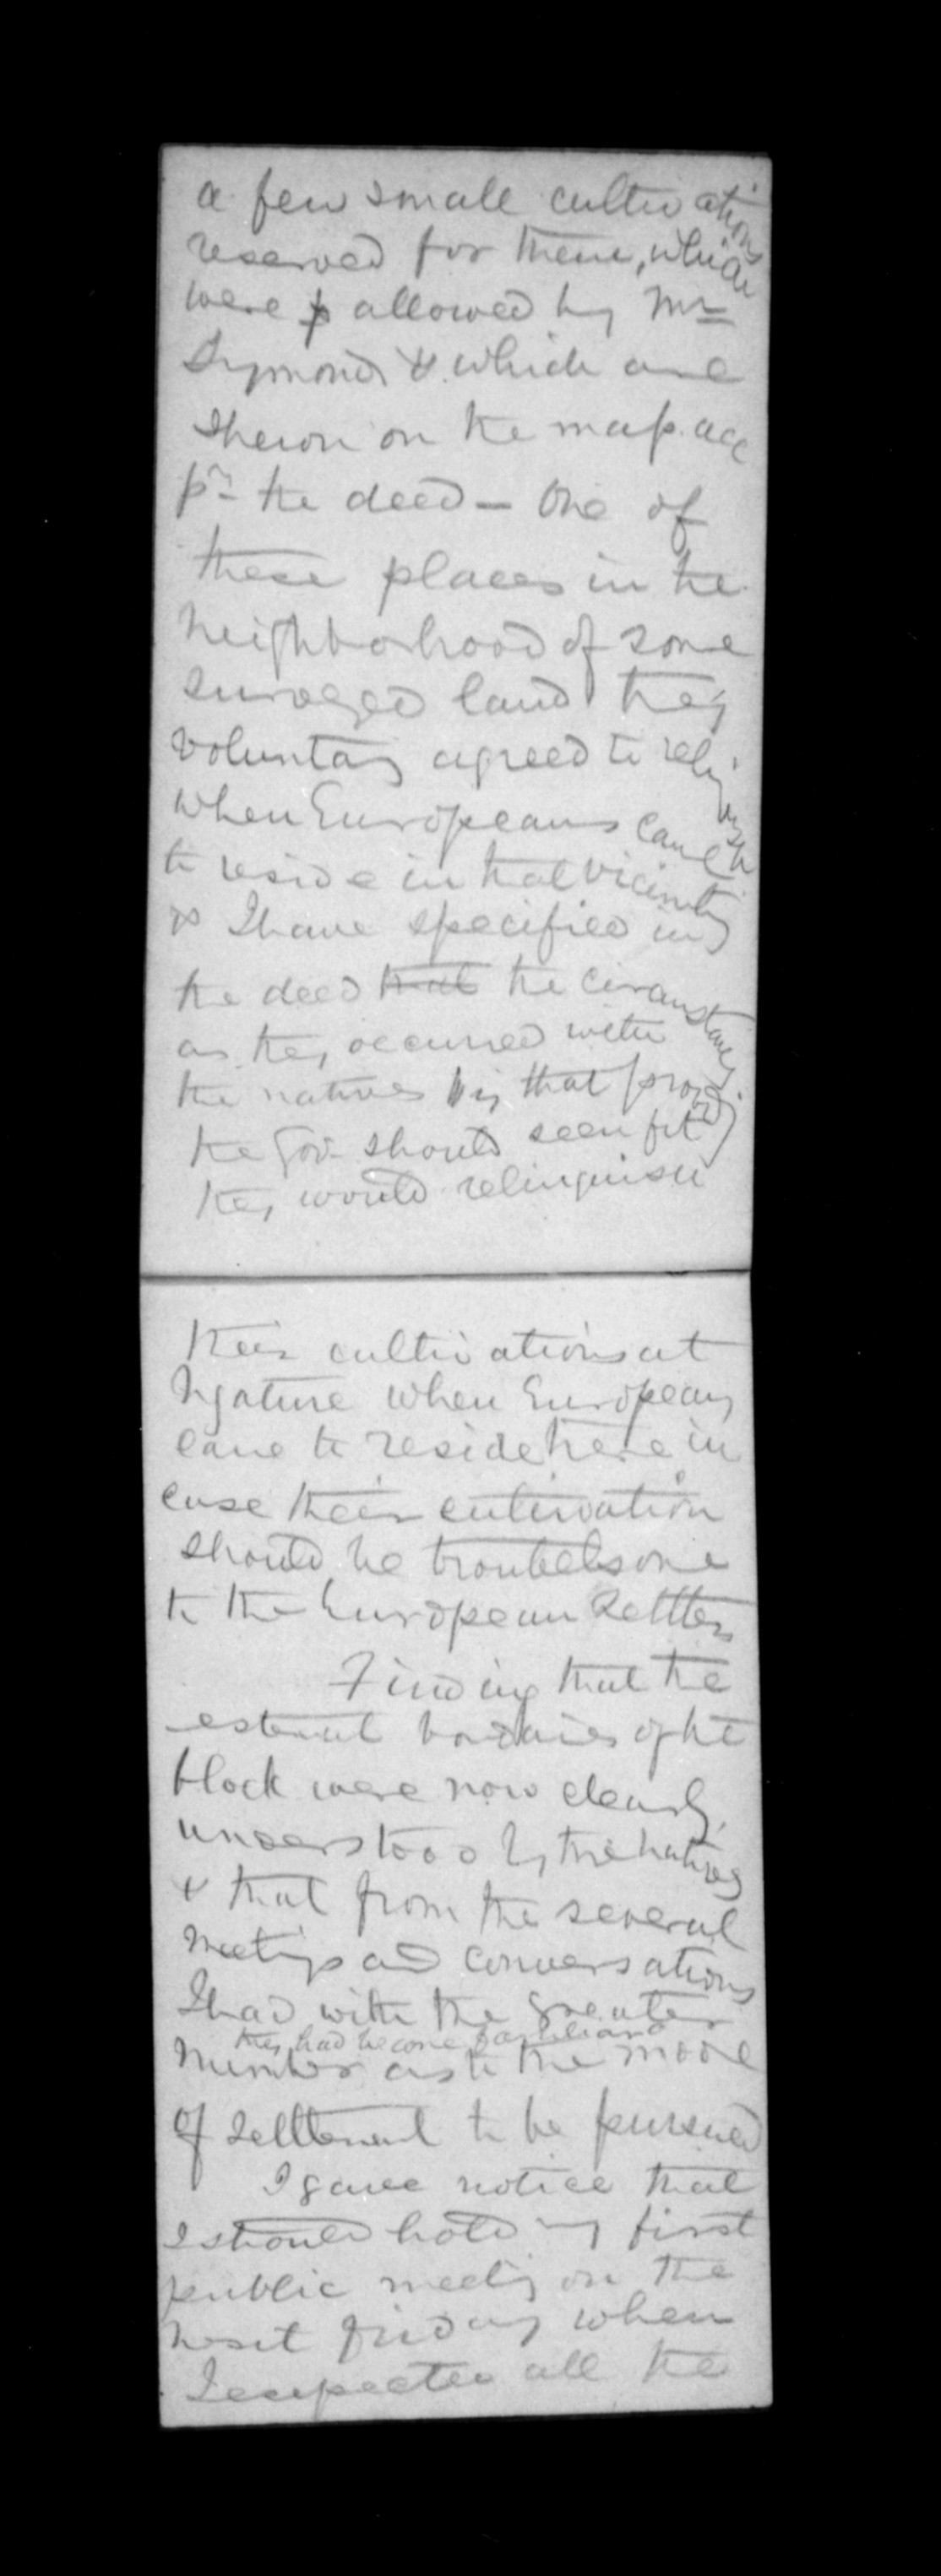 a few small cultivations
reserved for them, which
were allowed by Mr
Symonds & which are
shewn on the map acc
pr the deed – One of
these places in the
neighborhood of some
surveyed land they
voluntary agreed to relinquish
when Europeans came
to reside in that vicinity
& I have specified in
the deed that the circumstances
as they occurred with
the natives viz that provided
the Gov. should seem fit
they would relinquish
their cultivations at
Ngature when Europeans
came to reside here in
case their cultivation
should be troubelsome
to the European Settlers
Finding that the
external bordaries of the
block were now clearly
understood by the natives
& that from the several
meetings and conversations
I had with the greater
they had become familiar
number as to the mode
of settlement to be pursued
I gave notice that
I should hold my first
public meeting on the
next friday when
I expected all the